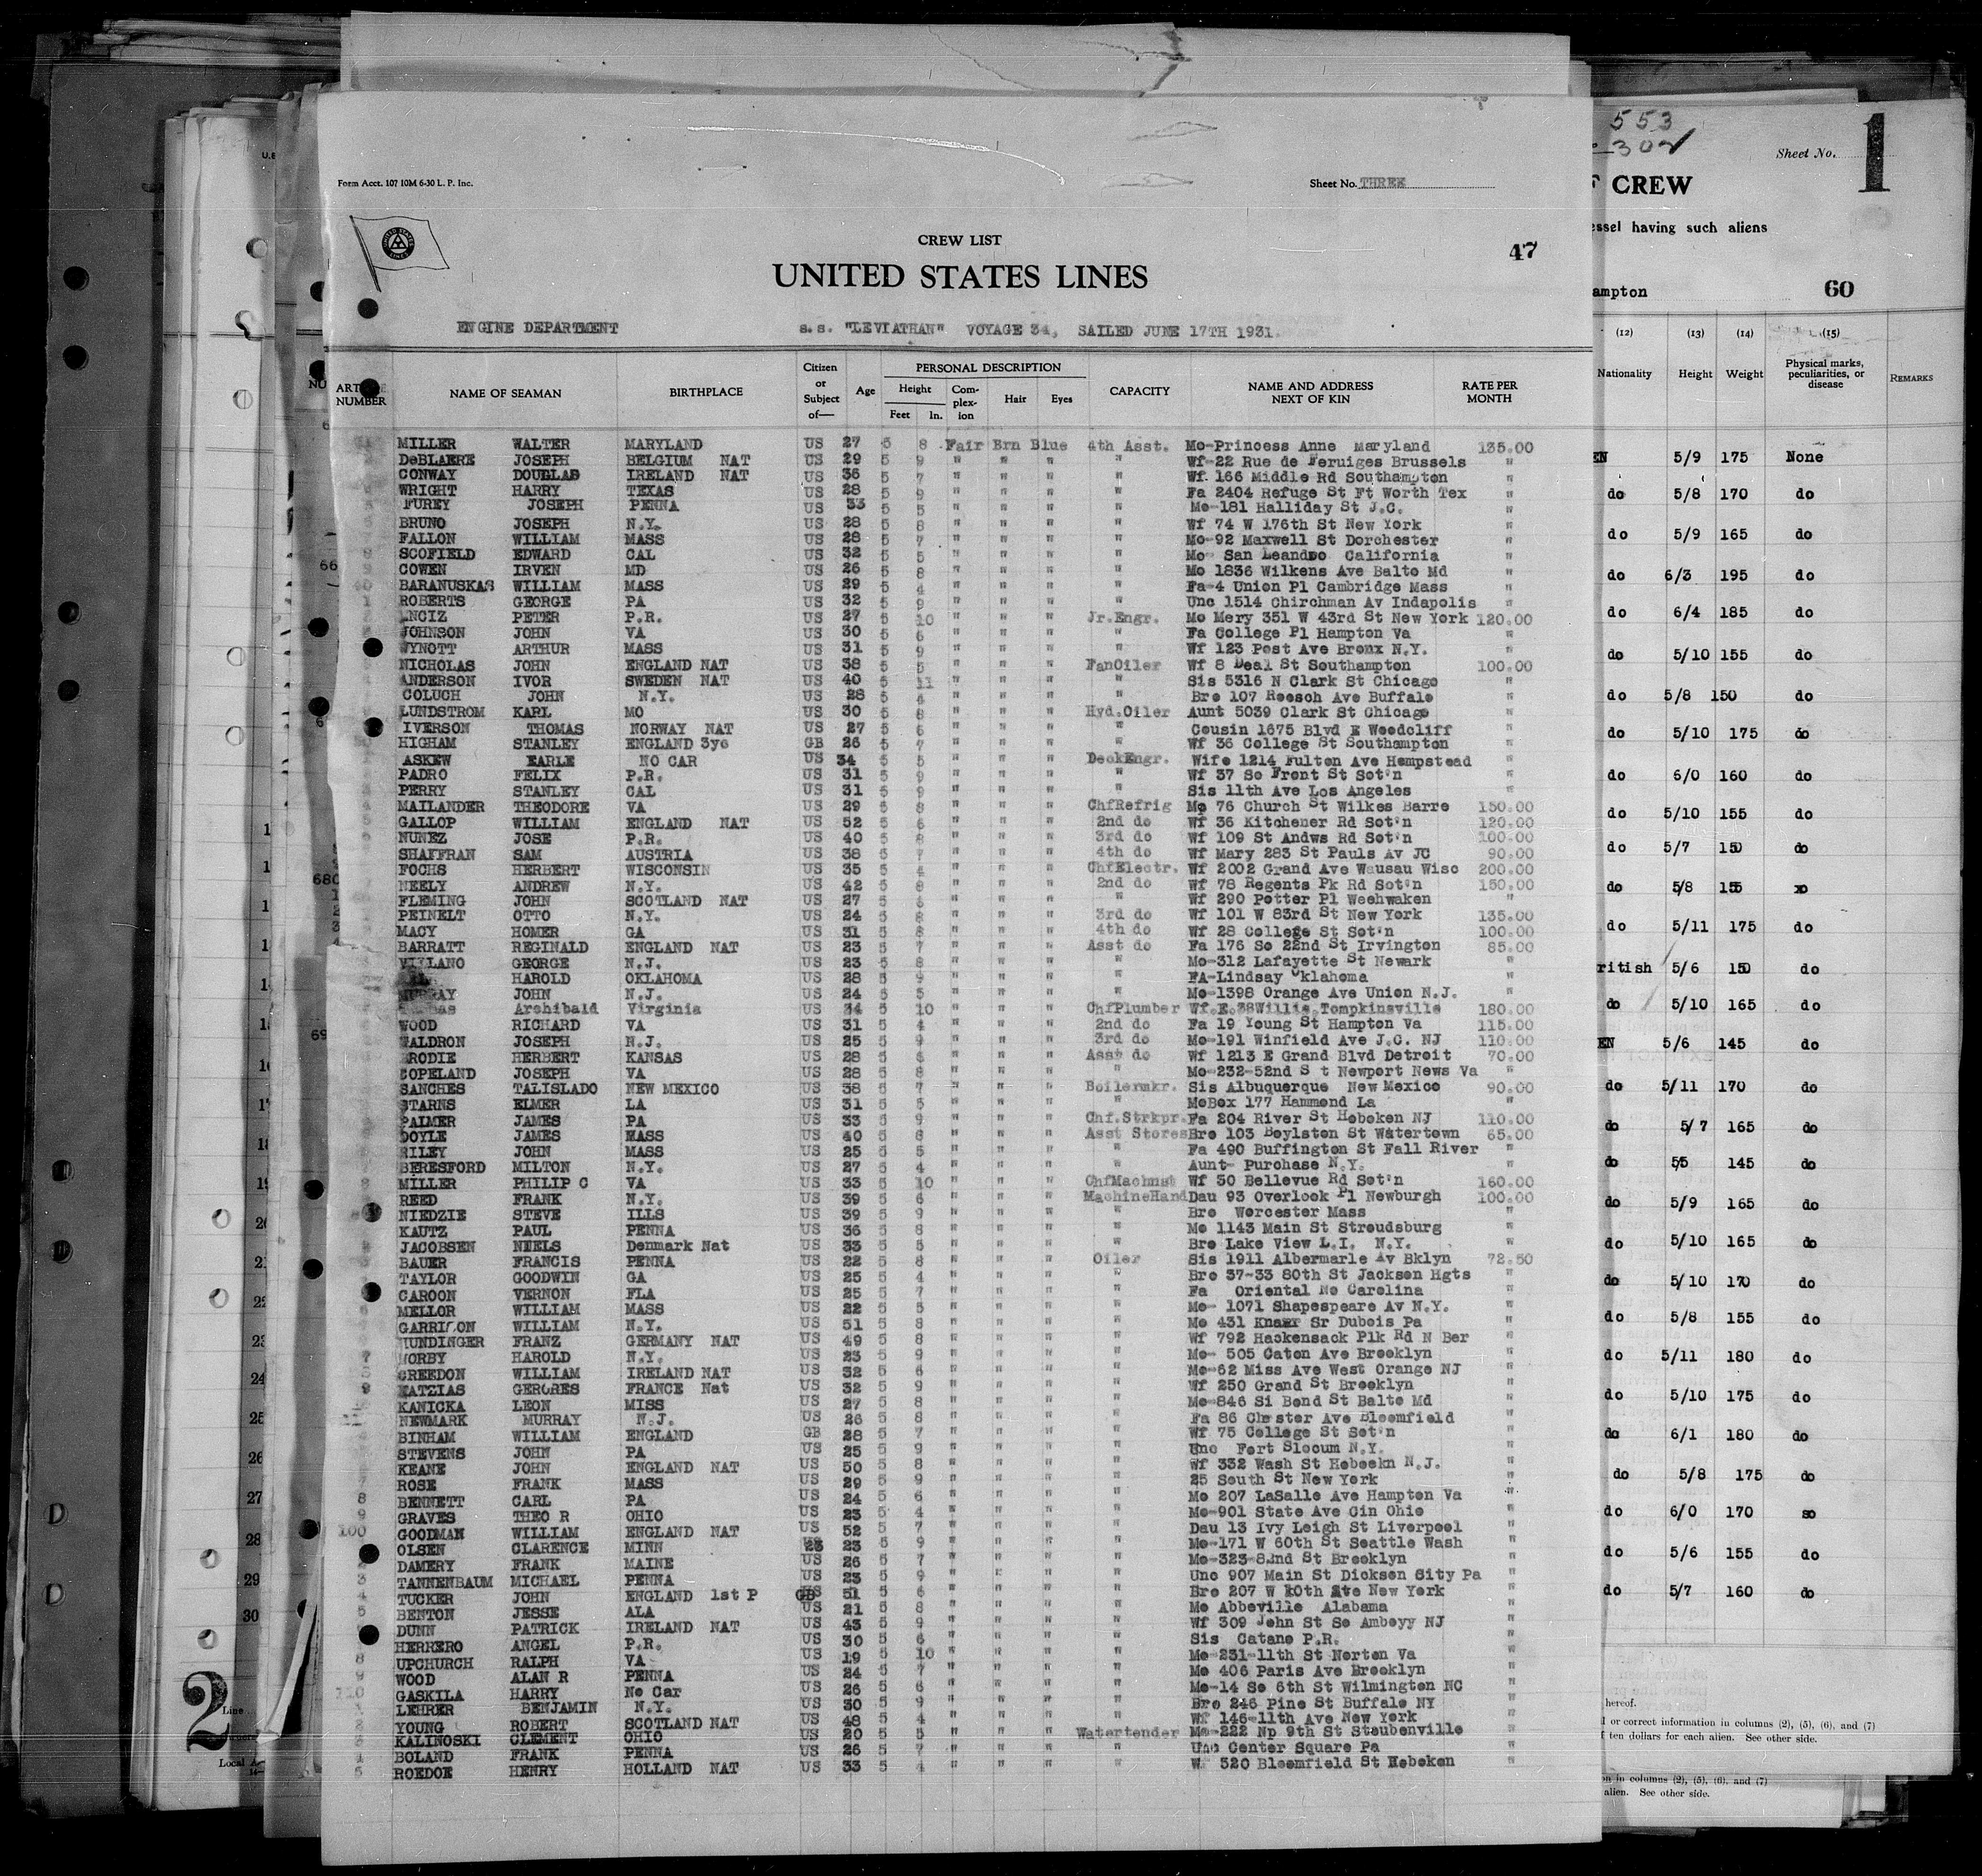 Form Acct. 107 10M 6-30 L. P. Inc.
Sheet No. THREE
CREW LIST
47
UNITED STATES LINES
ENGINE DEPARTMENT s.s. "LEVIATHAN" VOYAGE 34, SAILED JUNE 17TH 1931.
NUMBER NAME OF SEAMAN BIRTHPLACE Citizen or Subject of— Age PERSONAL DESCRIPTION Height Feet In. Complexion Hair Eyes CAPACITY NAME AND ADDRESS NEXT OF KIN RATE PER MONTH
MILLER WALTER MARYLAND US 27 5 8 Fair Brn Blue 4th Asst. Mo-Princess Anne Maryland 135.00
DeBLAERE JOSEPH BELGIUM NAT US 29 5 9 " " " " Wf-22 Rue de Feruiges Brussels "
CONWAY DOUGLAS IRELAND NAT US 36 5 7 " " " " Wf. 166 Middle Rd Southampton "
WRIGHT HARRY TEXAS US 28 5 9 " " " " Fa 2404 Refuge St Ft Worth Tex "
FUREY JOSEPH PENNA US 33 5 5 " " " " Mo-181 Halliday St J.C. "
BRUNO JOSEPH N.Y. US 28 5 8 " " " " Wf 74 W 176th St New York "
FALLON WILLIAM MASS US 28 5 7 " " " " Mo-92 Maxwell St Dorchester "
SCOFIELD EDWARD CAL US 32 5 5 " " " " Mo- San Leandro California "
COWEN IRVEN MD US 26 5 8 " " " " Mo 1836 Wilkens Ave Balto Md "
BARANUSKAS WILLIAM MASS US 29 5 4 " " " " Fa-4 Union Pl Cambridge Mass "
ROBERTS GEORGE PA US 32 5 9 " " " " Unc 1514 Chirchman Av Indapolis "
PETER P.R. US 27 5 10 " " " Jr.Engr. Mo Mery 351 W 43rd St New York 120.00
JOHNSON JOHN VA US 30 5 6 " " " " Fa College Pl Hampton Va "
WYNOTT ARTHUR MASS US 31 5 9 " " " " Wf 123 Post Ave Bronx N.Y. "
NICHOLAS JOHN ENGLAND NAT US 38 5 5 " " " FanOiler Wf 8 Deal St Southampton 100.00
ANDERSON IVOR SWEDEN NAT US 40 5 11 " " " " Sis 5316 N Clark St Chicago "
COLUCH JOHN N.Y. US 28 5 4 " " " " Bro 107 Roesch Ave Buffalo "
LUNDSTROM KARL MO US 30 5 8 " " " Hyd.Oiler Aunt 5039 Clark St Chicago "
IVERSON THOMAS NORWAY NAT US 27 5 6 " " " " Cousin 1675 Blvd E Woodcliff "
HIGHAM STANLEY ENGLAND 3yo GB 26 5 7 " " " " Wf 36 College St Southampton "
ASKEW EARLE NO CAR US 34 5 5 " " " DeckEngr. Wife 1214 Fulton Ave Hempstead "
PADRO FELIX P.R. US 31 5 9 " " " " Wf 37 So Front St Sot'n "
PERRY STANLEY CAL US 31 5 9 " " " " Sis 11th Ave Los Angeles "
MAILANDER THEODORE VA US 29 5 8 " " " ChfRefrig Mo 76 Church St Wilkes Barre 150.00
GALLOP WILLIAM ENGLAND NAT US 52 5 6 " " " 2nd do Wf 36 Kitchener Rd Sot'n 120.00
NUNEZ JOSE P.R. US 40 5 8 " " " 3rd do Wf 109 St Andws Rd Sot'n 100.00
SHAFFRAN SAM AUSTRIA US 38 5 7 " " " 4th do Wf Mary 283 St Pauls Av JC 90.00
FOCHS HERBERT WISCONSIN US 35 5 4 " " " ChfElectr. Wf 2002 Grand Ave Wausau Wisc 200.00
NEELY ANDREW N.Y. US 42 5 8 " " " 2nd do Wf 78 Regents Pk Rd Sot'n 150.00
FLEMING JOHN SCOTLAND NAT US 27 5 6 " " " " Wf 290 Potter Pl Weehwaken "
PEINELT OTTO N.Y. US 24 5 8 " " " 3rd do Wf 101 W 83rd St New York 135.00
MACY HOMER GA US 31 5 8 " " " 4th do Wf 28 College St Sot'n 100.00
BARRATT REGINALD ENGLAND NAT US 23 5 7 " " " Asst do Fa 176 So 22nd St Irvington 85.00
GEORGE N.J. US 23 5 8 " " " " Mo-312 Lafayette St Newark "
HAROLD OKLAHOMA US 28 5 9 " " " " FA-Lindsay Oklahoma "
MURRAY JOHN N.J. US 24 5 5 " " " " Mo-1398 Orange Ave Union N.J. "
Archibald Virginia US 34 5 10 " " " ChfPlumber Wf.E.38Willis,Tompkinsville 180.00
WOOD RICHARD VA US 31 5 4 " " " 2nd do Fa 19 Young St Hampton Va 115.00
WALDRON JOSEPH N.J. US 25 5 9 " " " 3rd do Mo-191 Winfield Ave J.C. NJ 110.00
BRODIE HERBERT KANSAS US 28 5 6 " " " Asst do Wf 1213 E Grand Blvd Detroit 70.00
COPELAND JOSEPH VA US 28 5 8 " " " " Mo-232-52nd S t Newport News Va "
SANCHES TALISLADO NEW MEXICO US 38 5 7 " " " Boilermkr. Sis Albuquerque New Mexico 90.00
STARNS ELMER LA US 31 5 5 " " " " MoBox 177 Hammond La "
PALMER JAMES PA US 33 5 9 " " " Chf.Strkpr. Fa 204 River St Hoboken NJ 110.00
DOYLE JAMES MASS US 40 5 8 " " " Asst Stores Bro 103 Boylston St Watertown 65.00
RILEY JOHN MASS US 25 5 5 " " " " Fa 490 Buffington St Fall River "
BERESFORD MILTON N.Y. US 27 5 4 " " " " Aunt- Purchase N.Y. "
MILLER PHILIP C VA US 33 5 10 " " " ChfMachnst Wf 50 Bellevue Rd Sot'n 160.00
REED FRANK N.Y. US 39 5 6 " " " MachineHand Dau 93 Overlook Pl Newburgh 100.00
NIEDZIE STEVE ILLS US 39 5 9 " " " " Bro Worcester Mass "
KAUTZ PAUL PENNA US 36 5 8 " " " " Mo 1143 Main St Stroudsburg "
JACOBSEN NIELS Denmark Nat US 33 5 5 " " " " Bro Lake View L.I. N.Y. "
BAUER FRANCIS PENNA US 22 5 8 " " " Oiler Sis 1911 Albermarle Av Bklyn 72.50
TAYLOR GOODWIN GA US 25 5 4 " " " " Bro 37-33 80th St Jackson Hgts "
CAROON VERNON FLA US 25 5 7 " " " " Fa Oriental No Carolina "
MELLOR WILLIAM MASS US 22 5 5 " " " " Mo- 1071 Shapespeare Av N.Y. "
GARRISON WILLIAM N.Y. US 51 5 8 " " " " Mo 431 Knarr Sr Dubois Pa "
HUNDINGER FRANZ GERMANY NAT US 49 5 8 " " " " Wf 792 Hackensack Plk Rd N Ber "
HAROLD N.Y. US 23 5 9 " " " " Mo- 505 Caton Ave Brooklyn "
CREEDON WILLIAM IRELAND NAT US 32 5 6 " " " " Mo-62 Miss Ave West Orange NJ "
KATZIAS GERGRES FRANCE Nat US 32 5 9 " " " " Wf 250 Grand St Brooklyn "
KANICKA LEON MISS US 27 5 8 " " " " Mo-846 Si Bond St Balto Md "
NEWMARK MURRAY N.J. US 26 5 8 " " " " Fa 86 Chester Ave Bloomfield "
BINHAM WILLIAM ENGLAND GB 28 5 7 " " " " Wf 75 College St Sot'n "
STEVENS JOHN PA US 25 5 9 " " " " Unc Fort Slocum N.Y. "
KEANE JOHN ENGLAND NAT US 50 5 8 " " " " Wf 332 Wash St Hoboekn N.J. "
ROSE FRANK MASS US 29 5 9 " " " " 25 South St New York "
8 BENNETT CARL PA US 24 5 6 " " " " Mo 207 LaSalle Ave Hampton Va "
9 GRAVES THEO R OHIO US 23 5 4 " " " " Mo-901 State Ave Cin Ohio "
100 GOODMAN WILLIAM ENGLAND NAT US 52 5 7 " " " " Dau 13 Ivy Leigh St Liverpool "
OLSEN CLARENCE MINN 23 5 9 " " " " Mo-171 W 60th St Seattle Wash "
DAMERY FRANK MAINE US 26 5 7 " " " " Mo-323-82nd St Brooklyn "
3 TANNENBAUM MICHAEL PENNA US 23 5 9 " " " " Unc 907 Main St Dickson City Pa "
4 TUCKER JOHN ENGLAND 1st P GB 51 5 6 " " " " Bro 207 W 10th Ste New York "
5 BENTON JESSE ALA US 21 5 8 " " " " Mo Abbeville Alabama "
DUNN PATRICK IRELAND NAT US 43 5 9 " " " " Wf 309 John St So Amboyy NJ "
HERRERO ANGEL P.R. US 30 5 6 " " " " Sis Catano P.R. "
8 UPCHURCH RALPH VA US 19 5 10 " " " " Mo-231-11th St Norton Va "
9 WOOD ALAN R PENNA US 24 5 7 " " " " Mo 406 Paris Ave Brooklyn "
110 GASKILA HARRY No Car US 26 5 6 " " " " Mo-14 So 6th St Wilmington NC "
LEHRER BENJAMIN N.Y. US 30 5 9 " " " " Bro 246 Pine St Buffalo NY "
YOUNG ROBERT SCOTLAND NAT US 48 5 4 " " " " Wf 146-11th Ave New York "
3 KALINOSKI CLEMENT OHIO US 20 5 5 " " " Watertender Mo-222 Np 9th St Steubenville "
4 BOLAND FRANK PENNA US 26 5 7 " " " " Unc Center Square Pa "
5 ROEDOE HENRY HOLLAND NAT US 33 5 4 " " " " W 520 Bloomfield St Hoboken "
553
302
Sheet No.
1
CREW
having such aliens
ampton 60
(12) (13) (14) (15)
Nationality Height Weight Physical marks, peculiarities, or disease REMARKS
EN 5/9 175 None
do 5/8 170 do
do 5/9 165 do
do 6/3 195 do
do 6/4 185 do
do 5/10 155 do
do 5/8 150 do
do 5/10 175 do
do 6/0 160 do
do 5/10 155 do
do 5/7 150 do
do 5/8 155 do
do 5/11 175 do
ritish 5/6 150 do
do 5/10 165 do
EN 5/6 145 do
do 5/11 170 do
do 5/7 165 do
do 5/5 145 do
do 5/9 165 do
do 5/10 165 do
do 5/10 170 do
do 5/8 155 do
do 5/11 180 do
do 5/10 175 do
do 6/1 180 do
do 5/8 175 do
do 6/0 170 so
do 5/6 155 do
do 5/7 160 do
hereof.
or correct information in columns (2), (5), (6), and (7)
ten dollars for each alien. See other side.
in columns (2), (5), (6), and (7)
alien. See other side.
22
23
24
25
26
27
28
29
30
2
Line
Local